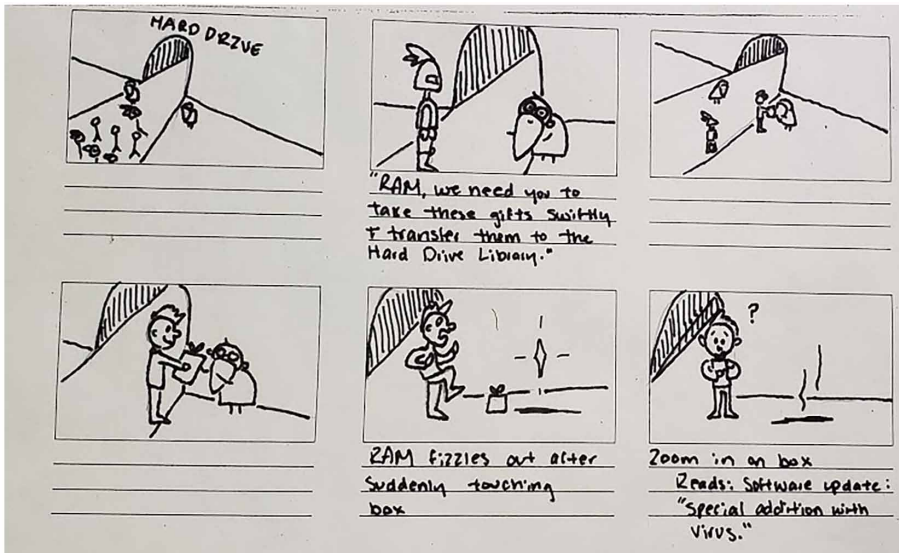 HARD DRIVE
"RAM, we need you to
take these gifts swiftly
& transfer them to the
Hard Drive Library."
?
RAM fizzles out after
suddenly touching
box
Zoom in on box
Reads: Software update:
"special addition with
virus."